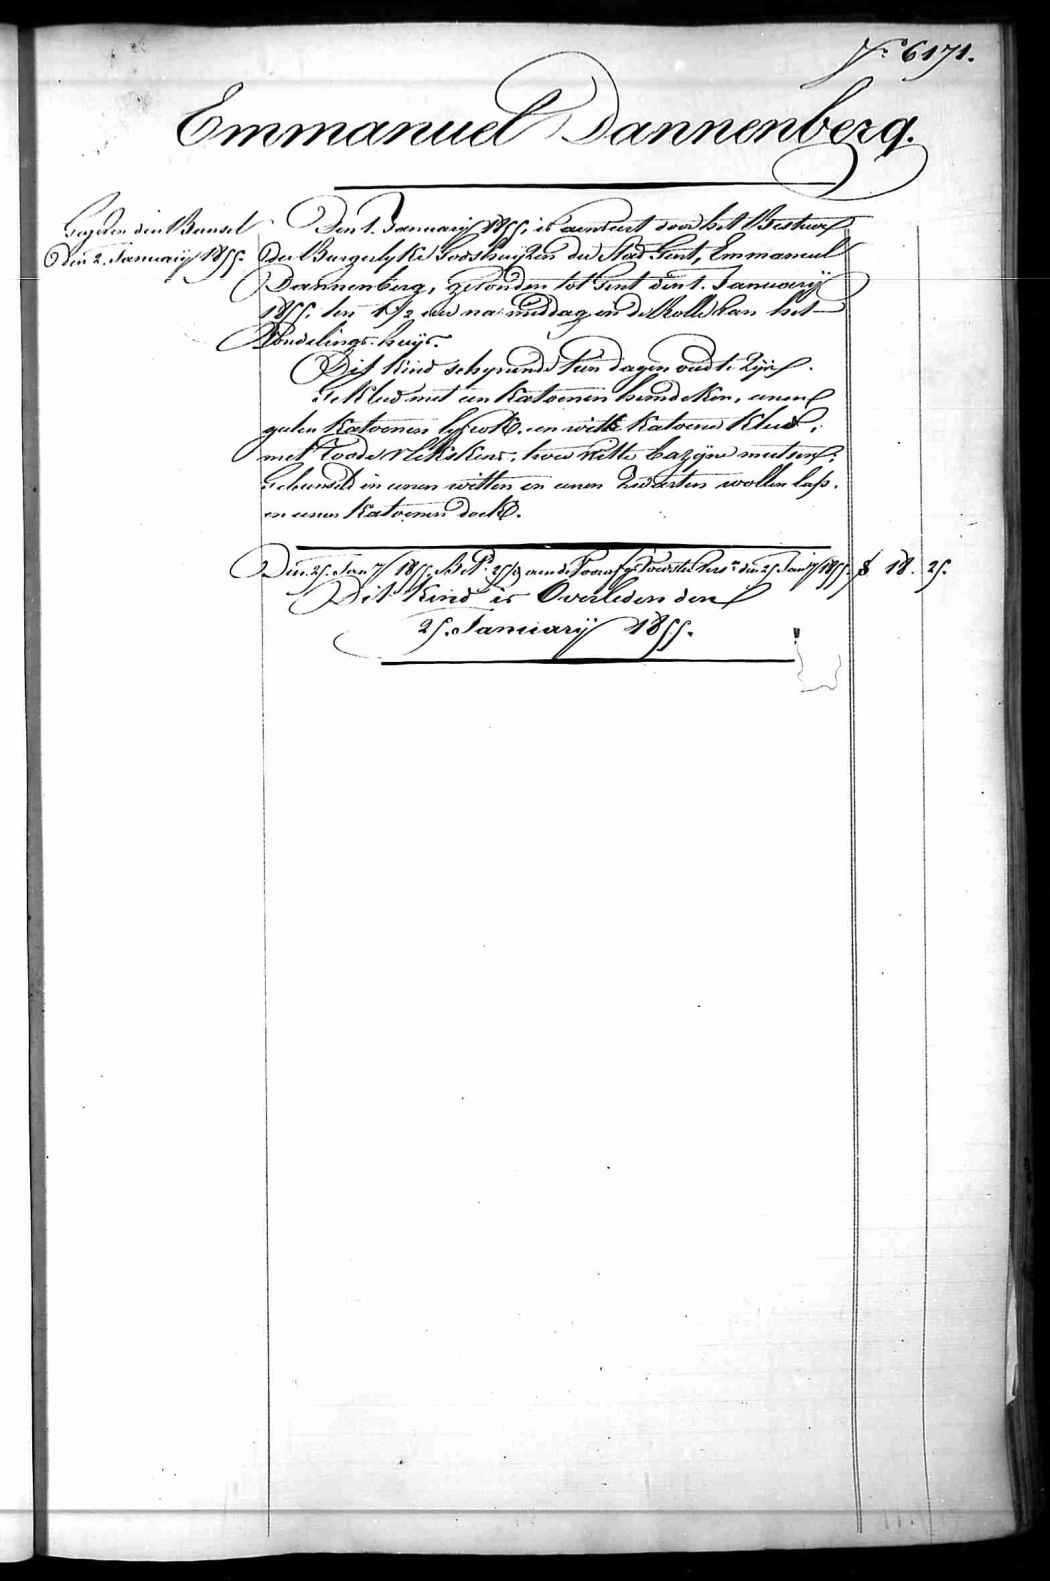 N.° 6171.
Emmanuel Dannenberg.
den 2. Januarij 1855.
Den 1. Januarij 1855, is aenveert door het Bestuer
der Burgerlyke Godshuijzen der Stad Gent, Emmanuel
Dannenberg, gevonden tot Gent den 1. Januarij
1855. ten 1 1/2 ure na middag in de Rolle van het
Vondelings-huijs.
Dit kind schynende tien dagen oud te zijn.
Gekleed met een katoenen hemdeken, eenen
gelen katoenen lyfrok. een witte katoene kleed,
met roode vlekskens, twee witte bazyne mutsen.
in eenen witten en eenen zwarten wollen lap.
en eenen katoenen doek.
Den 25. Jan.ry 1855. den 25. Jan.ry 1855. 18. 25.
Dit kind is Overleden den
25. Januarij 1855.